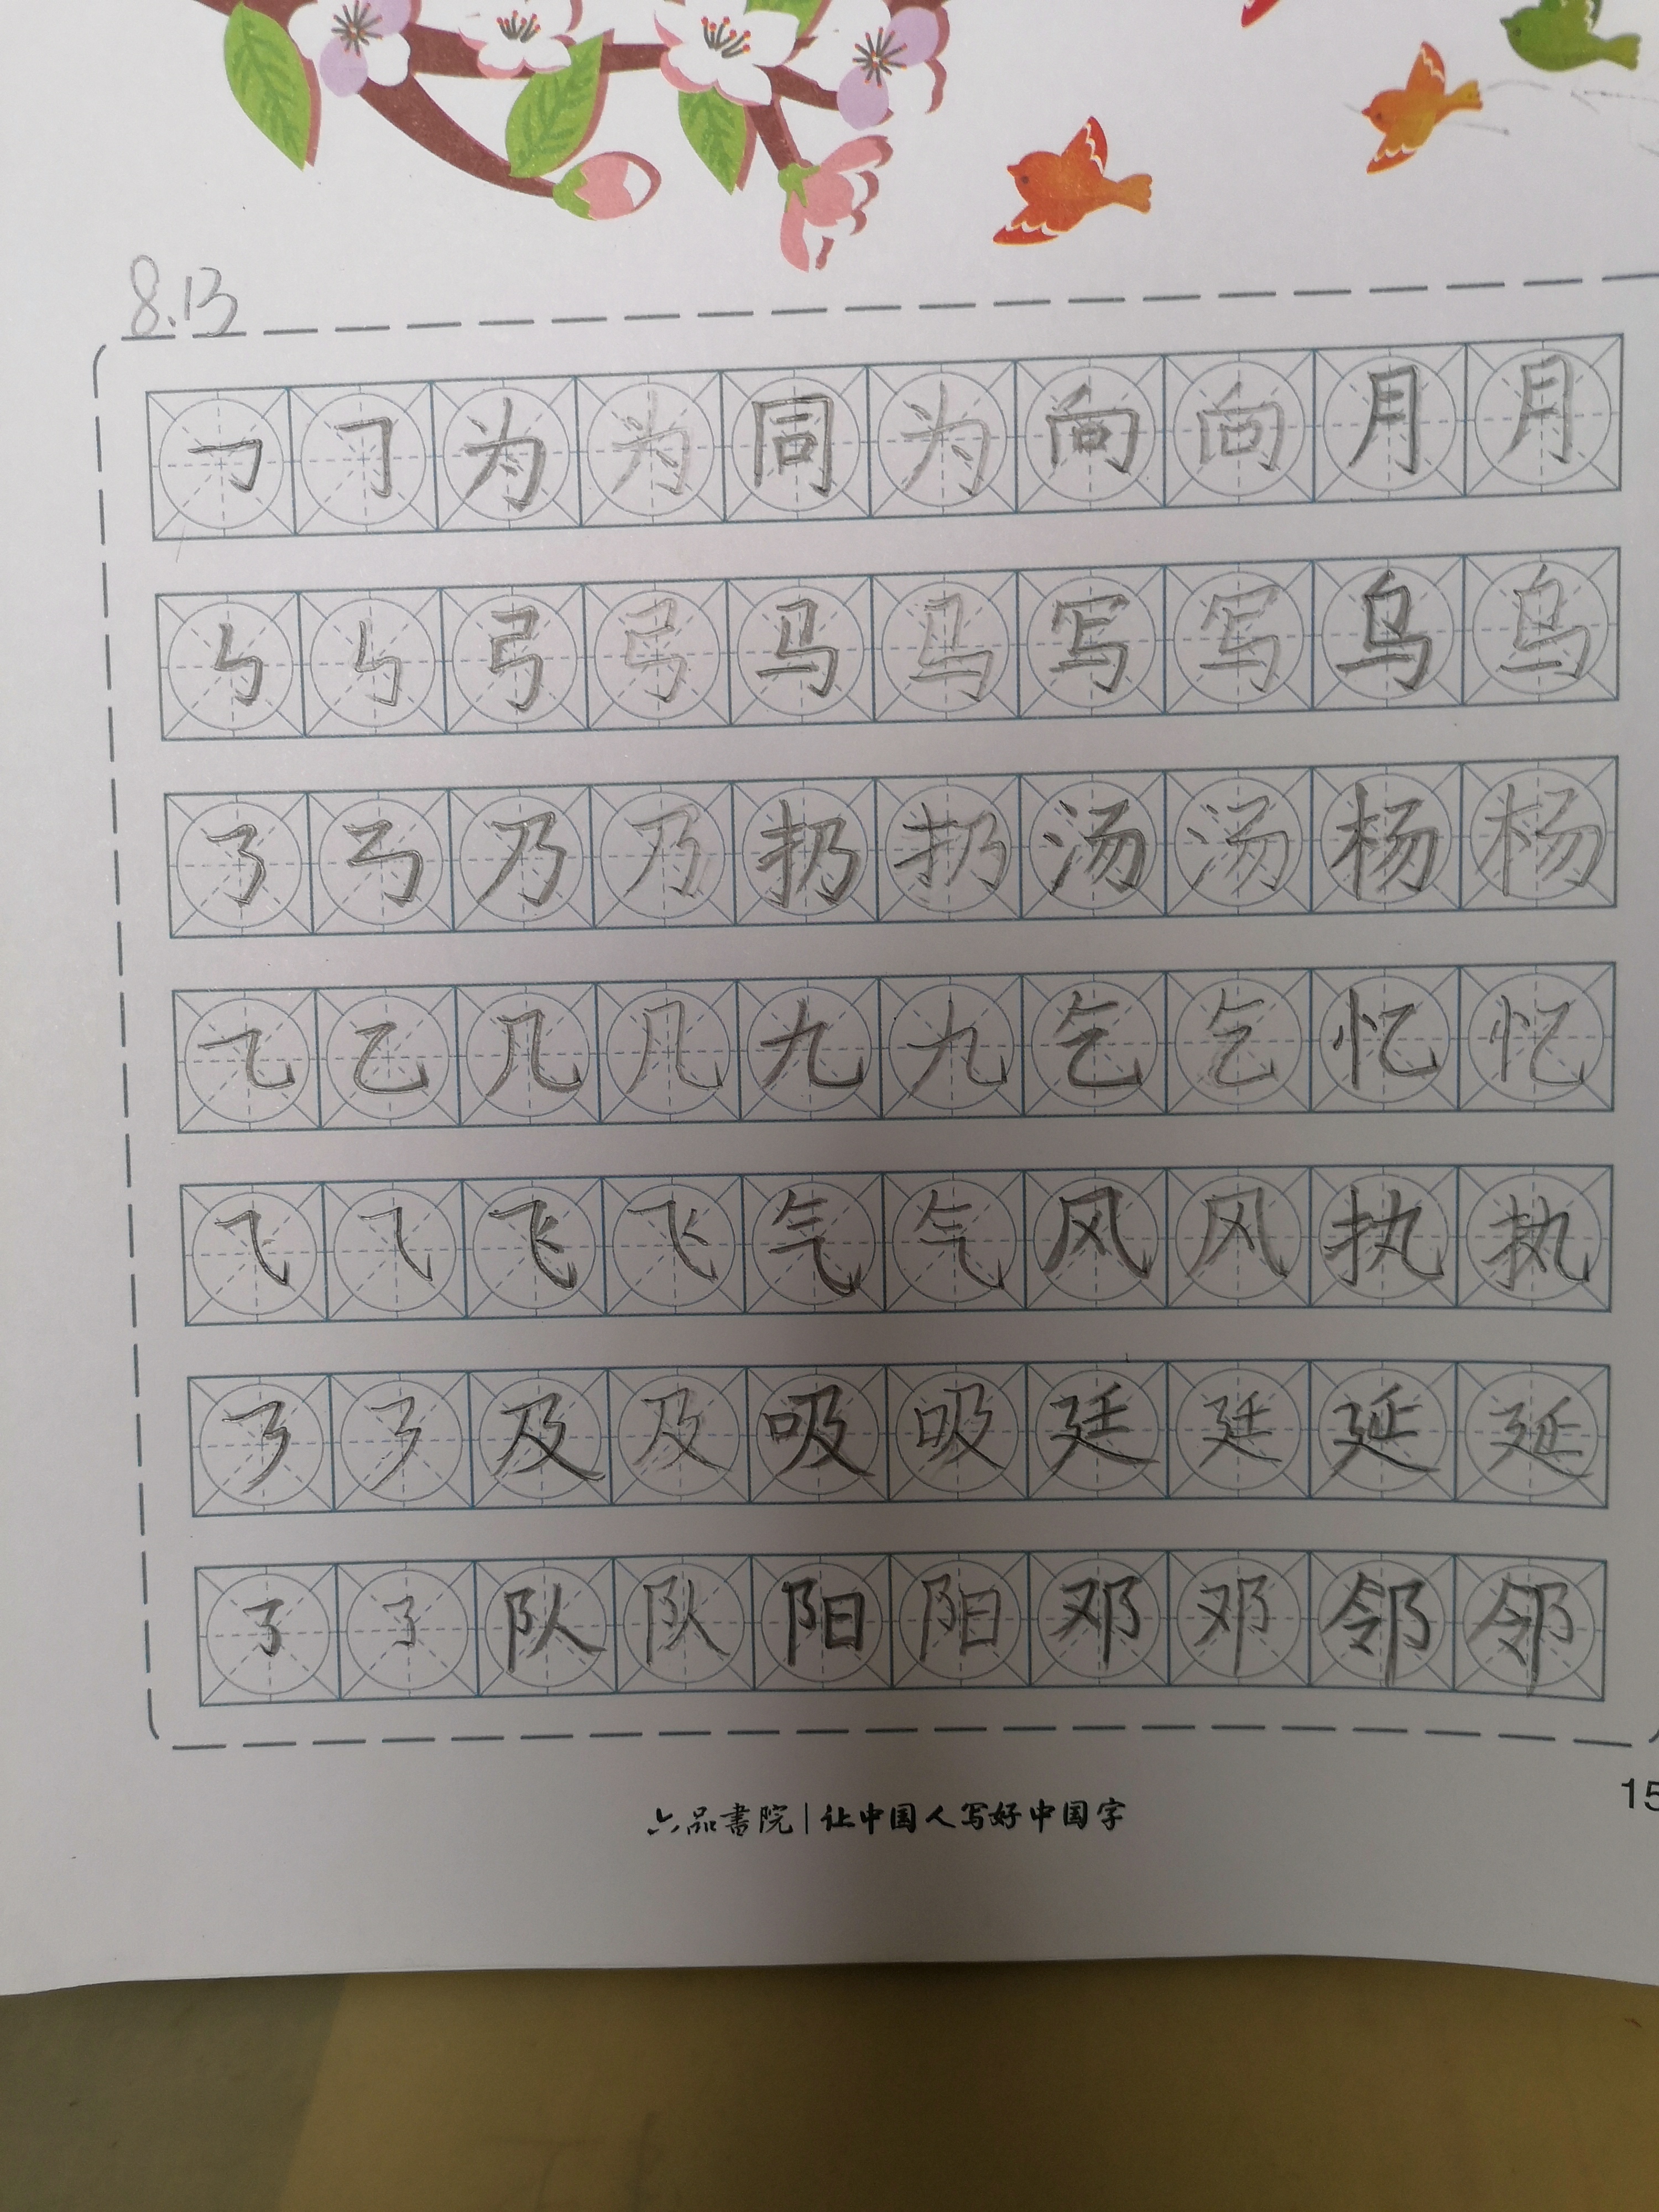 8.13
㇆ ㇆ 为 为 同 为 向 向 月 月
㇉ ㇉ 弓 弓 马 马 写 写 乌 乌
㇡ ㇡ 乃 乃 扔 扔 汤 汤 杨 杨
㇈ 乙 几 几 九 九 乞 乞 忆 忆
⺄ ⺄ 飞 飞 气 气 风 风 执 执
㇋ ㇋ 及 及 吸 吸 廷 廷 延 延
㇌ ㇌ 队 队 阳 阳 邓 邓 邻 邻
六品書院|让中国人写好中国字
15